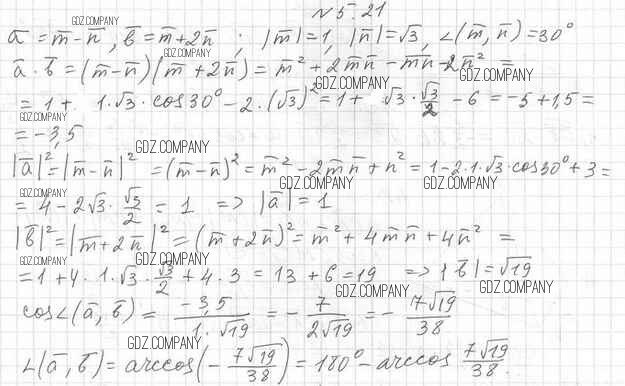 № 5.21
GDZ.COMPANY GDZ.COMPANY
a̅ = m̅ - n̅, b̅ = m̅ + 2n̅ ; |m̅| = 1, |n̅| = √3, ∠(m̅, n̅) = 30°
GDZ.COMPANY
a̅ · b̅ = (m̅ - n̅)(m̅ + 2n̅) = m̅² + 2m̅n̅ - m̅n̅ - 2n̅² =
GDZ.COMPANY GDZ.COMPANY
= 1 + 1·√3 · cos30° - 2·(√3)² = 1 + √3 · √3/2 - 6 = -5 + 1,5 =
GDZ.COMPANY
= -3,5
GDZ.COMPANY
|a̅|² = |m̅ - n̅|² = (m̅ - n̅)² = m̅² - 2m̅n̅ + n̅² = 1 - 2·1·√3·cos30° + 3 =
GDZ.COMPANY GDZ.COMPANY
= 4 - 2√3 · √3/2 = 1 => |a̅| = 1
GDZ.COMPANY
|b̅|² = |m̅ + 2n̅|² = (m̅ + 2n̅)² = m̅² + 4m̅n̅ + 4n̅² =
GDZ.COMPANY GDZ.COMPANY
= 1 + 4 · 1·√3 · √3/2 + 4·3 = 13 + 6 = 19 => |b̅| = √19
GDZ.COMPANY GDZ.COMPANY
cos∠(a̅, b̅) = -3,5/(1·√19) = -7/(2√19) = -7√19/38
GDZ.COMPANY
∠(a̅, b̅) = arccos(-7√19/38) = 180° - arccos 7√19/38.